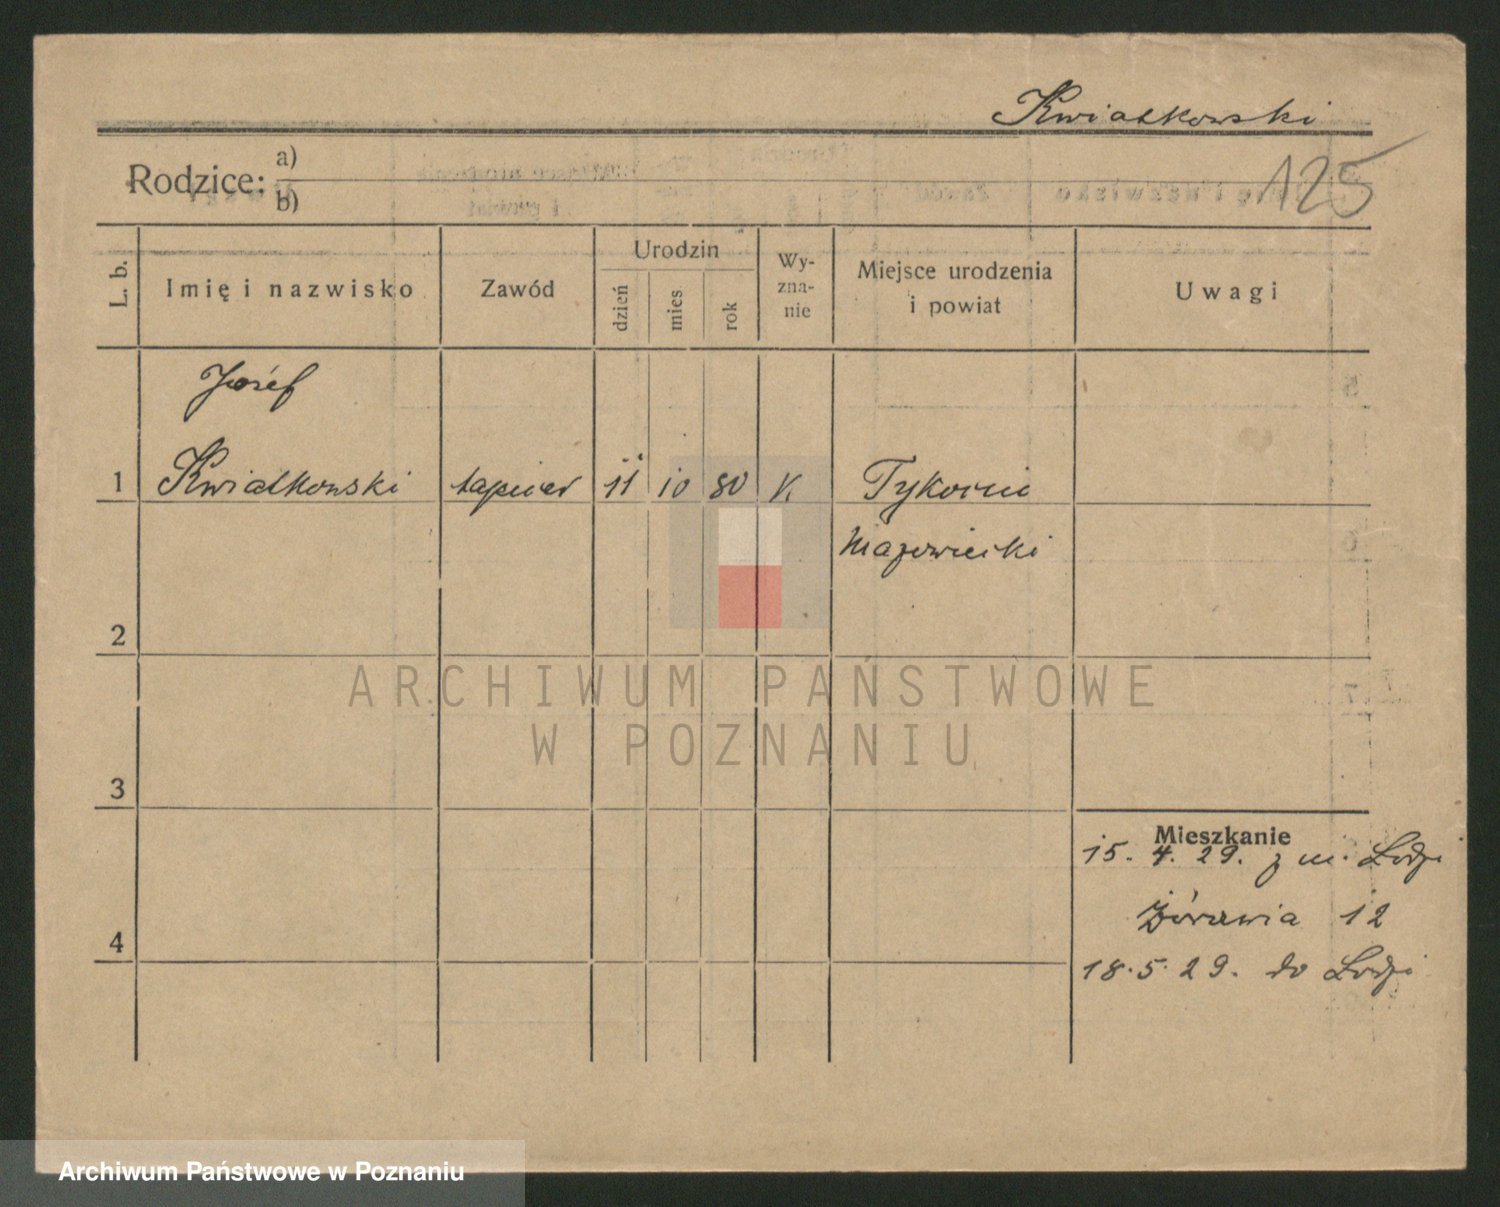 Kwiatkowski
125
Rodzice: a)
b)
L. b. Imię i nazwisko Zawód Urodzin dzień mies rok Wy-zna-nie Miejsce urodzenia i powiat Uwagi
Józef
1 Kwiatkowski tapicer 11 10 80 K. Tykocin
Mazowiecki
2
3
Mieszkanie
15. 4. 29. z m. Lodzi
Żórawia 12
4
18. 5. 29. do Lodzi
ARCHIWUM PAŃSTWOWE
W POZNANIU
Archiwum Państwowe w Poznaniu